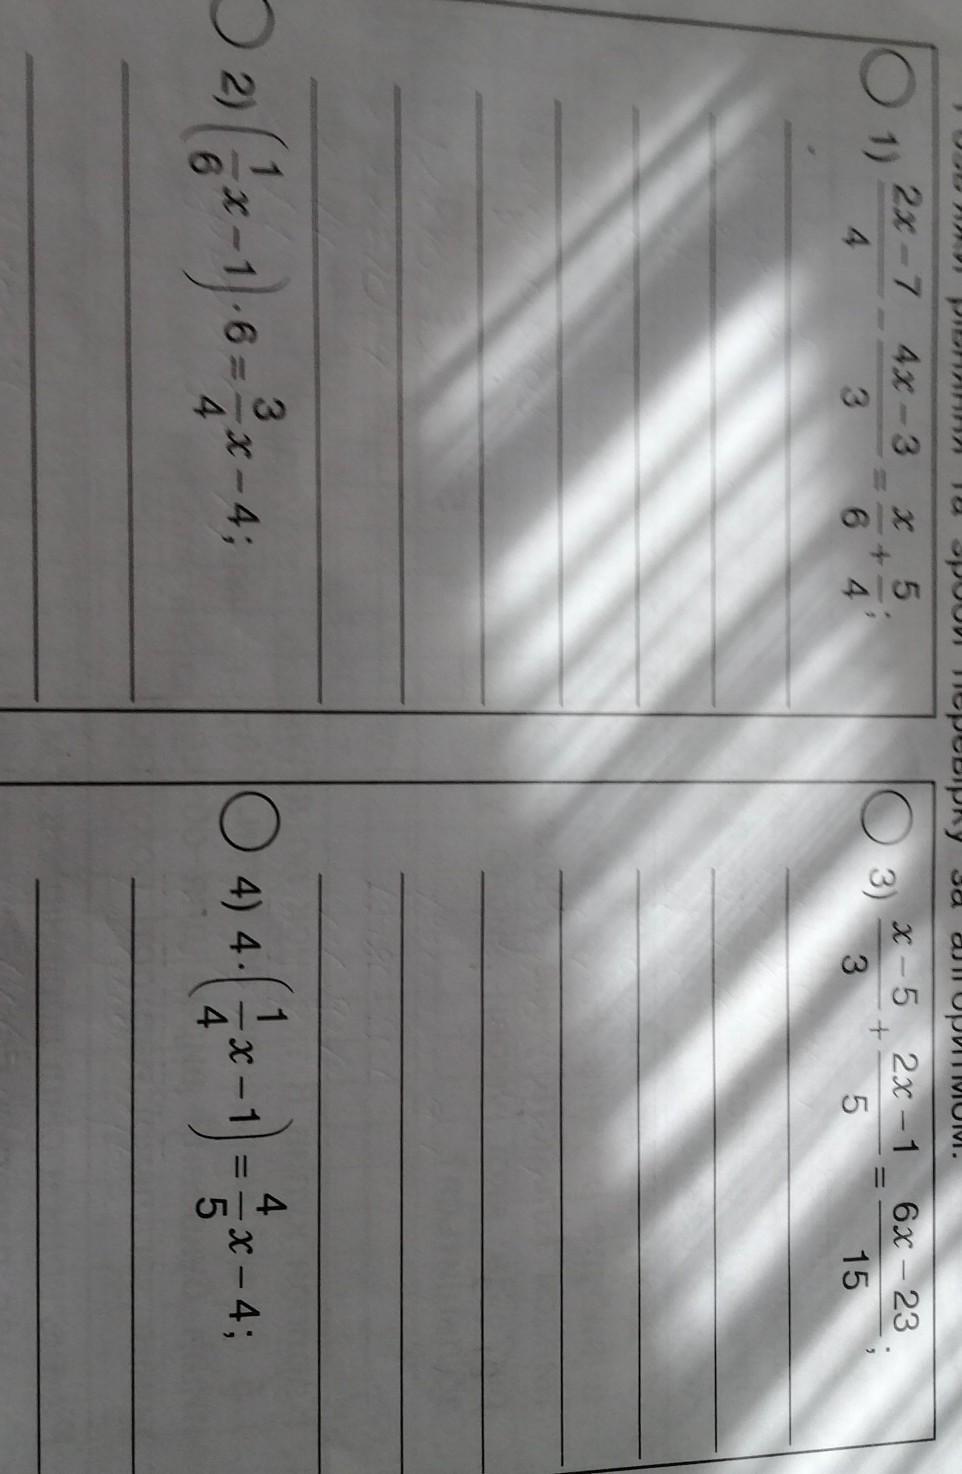 рівняння та зроби перевірку за алгоритмом.
1) (2x − 7)/4 − (4x − 3)/3 = x/6 + 5/4;
2) (1/6 x − 1) · 6 = 3/4 x − 4;
3) (x − 5)/3 + (2x − 1)/5 = (6x − 23)/15;
4) 4 · (1/4 x − 1) = 4/5 x − 4;